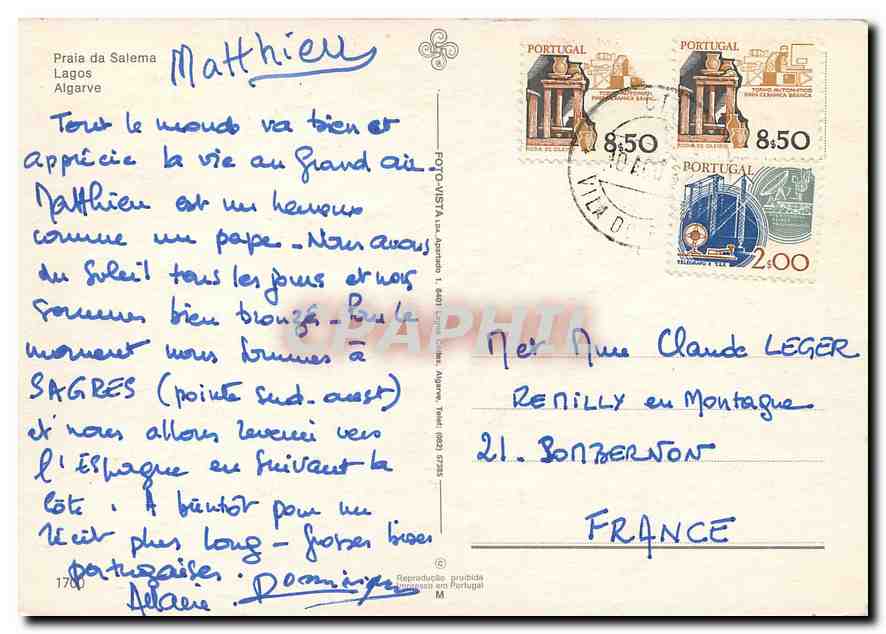 Praia da Salema
Lagos
Algarve
Matthieu
Tout le monde va bien et
apprécie la vie au Grand air.
Matthieu est un heureux
comme un pape. Nous avons
du Soleil tous les jours et nous
sommes bien bronzés. Pour le
moment nous sommes à
SAGRES (pointe sud-ouest)
et nous allons revenir vers
l'ESpagne en suivant la
côte. A bientôt pour un
récit plus long - Grosses bises
portugaises.
Dominique
1700
FOTO-VISTA LDA. Apartado 1, 8401 Lagos Codex, Algarve, Telef: (082) 57385
PORTUGAL
TORNO AUTOMÁTICO
PARA CERÂMICA BRANCA
RODA DE OLEIRO
8$50
PORTUGAL
TORNO AUTOMÁTICO
PARA CERÂMICA BRANCA
RODA DE OLEIRO
8$50
PORTUGAL
2$00
VILA DO
CPAPHIL
M et Mme Claude LEGER
REMILLY en Montagne
21. SOMBERNON
FRANCE
©
Reprodução proibida
Impresso em Portugal
M